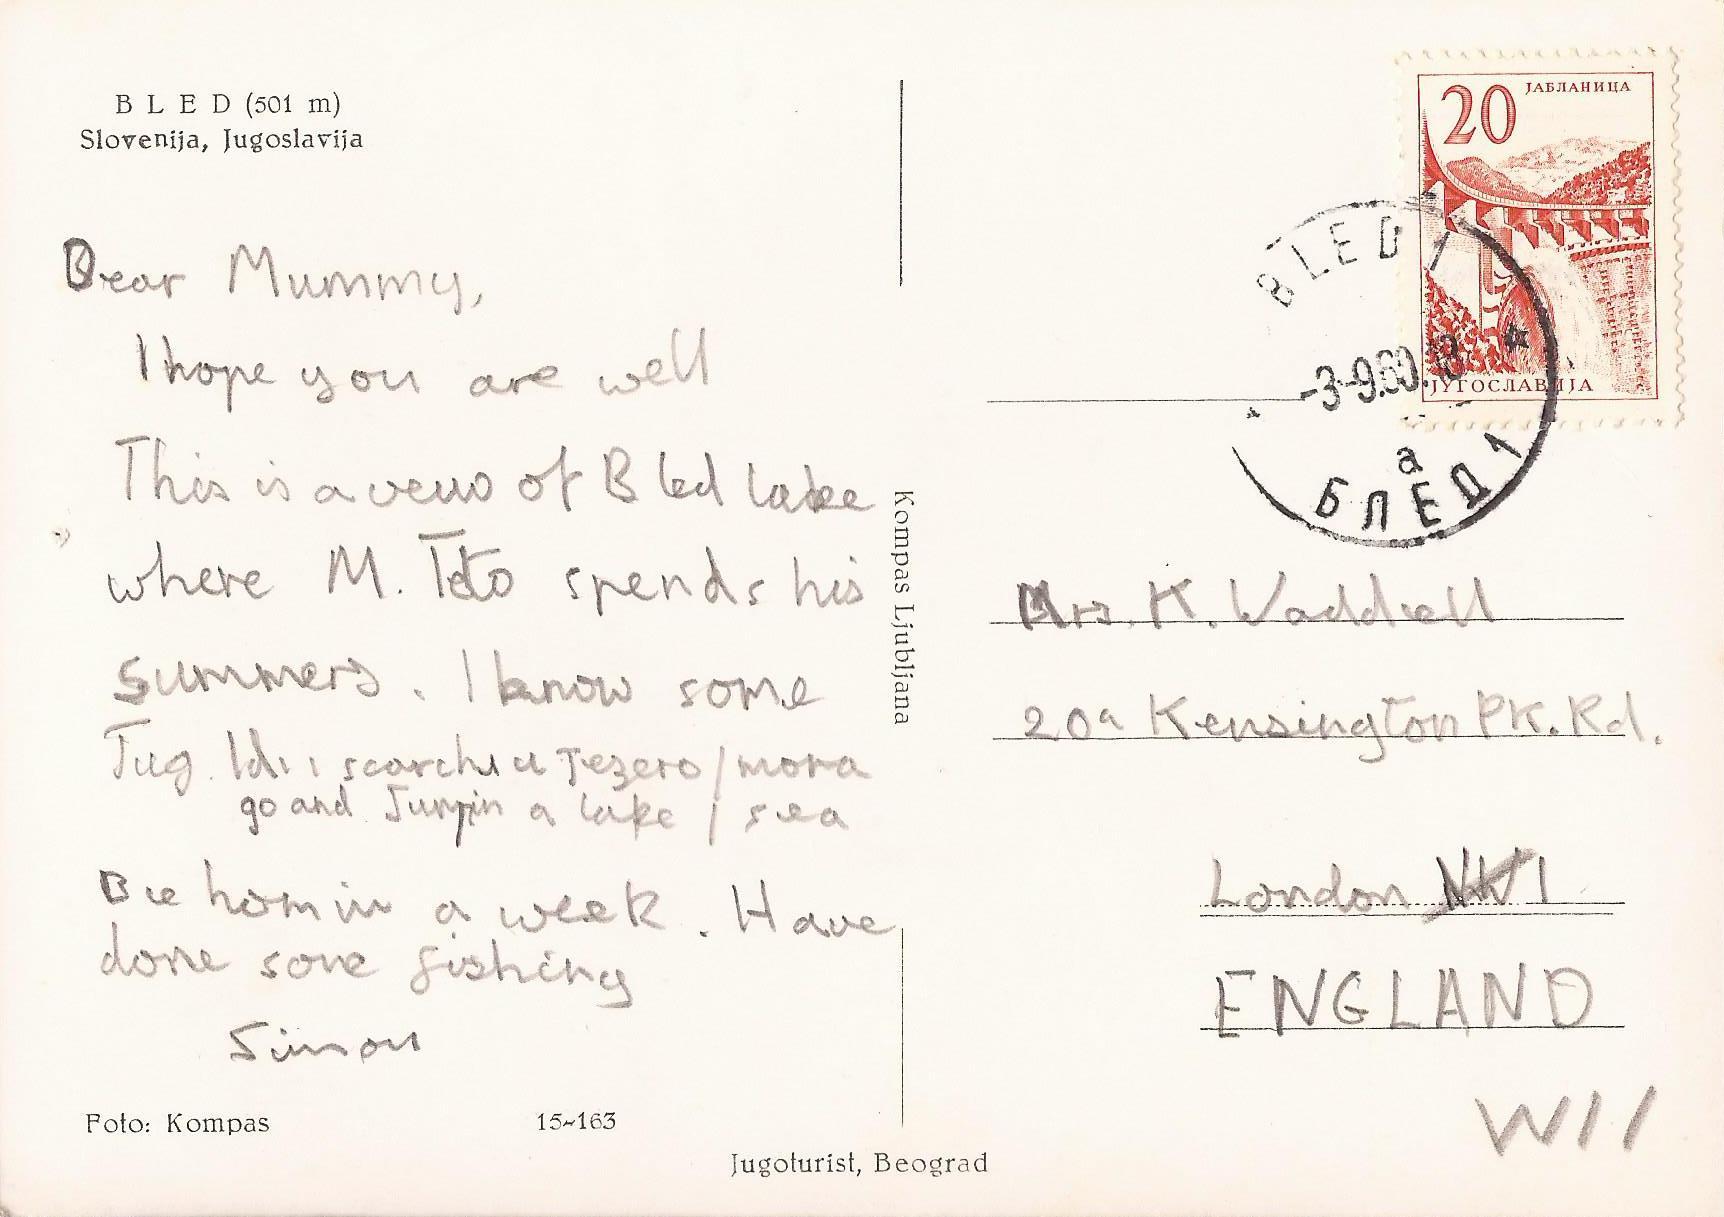 B L E D (501 m)
Slovenija, Jugoslavija
Dear Mummy,
I hope you are well
This is a veuw of Bled lake
where M. Teto spends his
summers. I know some
Jug. Idi i u Jezero / mora
go and Jumpin a lake / sea
Be homin a week. Have
done some fishing
Simon
Foto: Kompas 15-163
Kompas Ljubljana
Jugoturist, Beograd
20 ЈАБЛАНИЦА
ЈУГОСЛАВИЈА
BLED 1
-3-9.60.18
a
БЛЕД 1
Mrs. K. Waddell
20a Kensington PK. Rd.
London
ENGLAND
W11